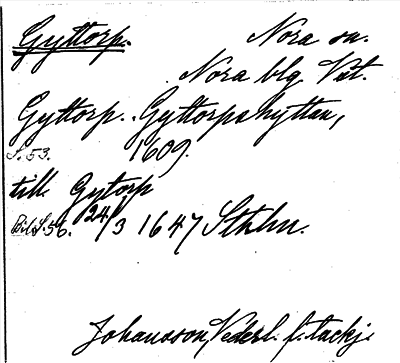 Gyttorp. Nora sn.
Nora blg Vstl.
Gyttorp. Gyttorpshyttan,
S. 53. 1609.
till Gytorp
Bil. S. 56. 24/3 1647 Sthlm.
Johansson, Vederl. f. tackj.